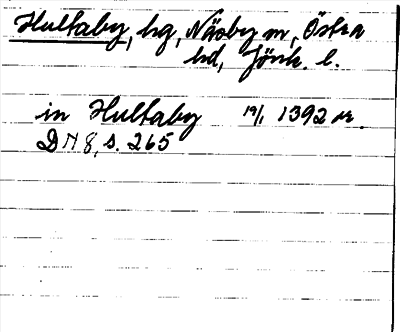 Hultaby, hg, Näsby m, Östra
hd, Jönk. l.
in Hultaby 19/1 1392 or.
DN 8, s. 265